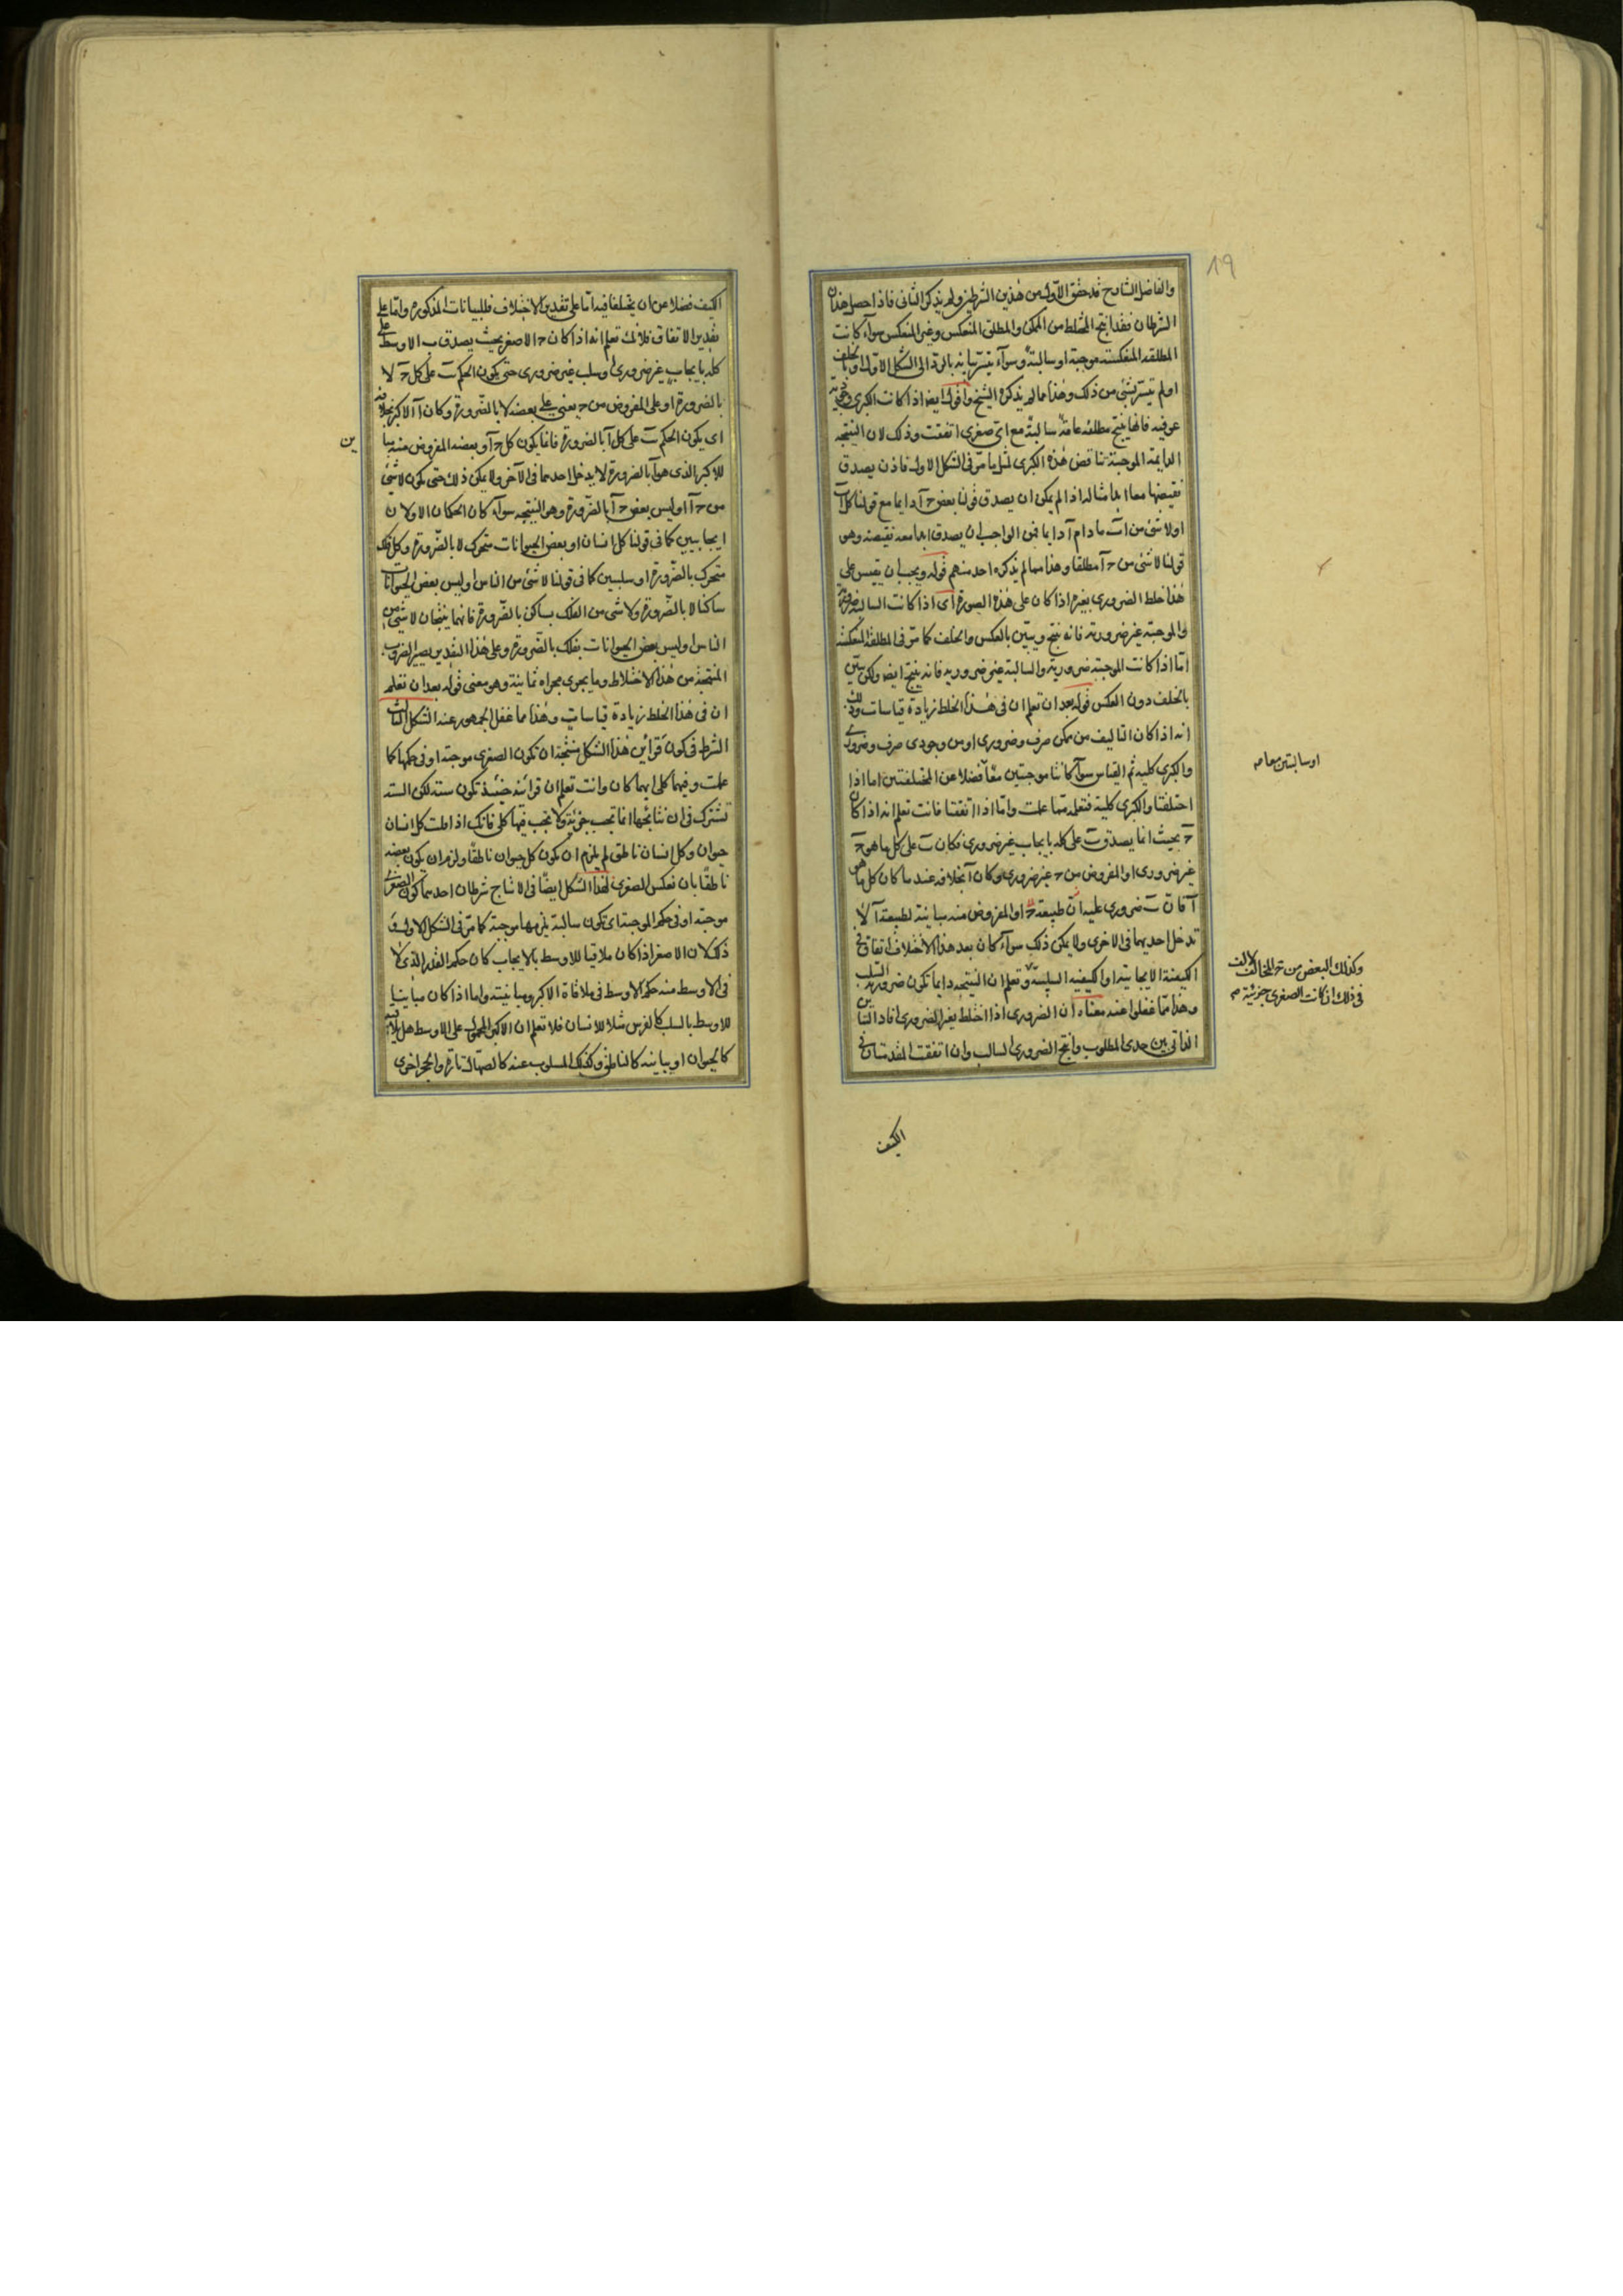 والفاضل الشارح قد حقق الاول من هذين الشرطين ولم يذكر الثانى فاذا حصل هذان
الشرطان فقد انتج المختلط من الممكن والمطلق المنعكس وغير المنعكس سوآء كانت
المطلقه المنعكسته موجبة او سالبة وسوآء تيسر بيانه بالرد الى الشكل الاول او بالخلف
او لم تيسر بشئ من ذلك وهذا مما لم يذكره الشيخ واقول ايضا اذا كانت الكبرى
عرفيه فانها ينتج مطلقه عامة سالبة مع اى صغرى اتفقت وذلك لان النتيجه
الدايمة الموجبة تناقض هذه الكبرى لمثل ما مر فى الشكل الاول فاذن يصدق
نقيضها معا ابدا مثاله اذا لم يمكن ان يصدق قولنا بعض حـ آ دايما مع قولنا كل آ ب
او لا شئ من آ ب مادام آ دايما فمن الواجب ان يصدق ابدا معه نقيضه وهو
قولنا لا شئ من حـ آ مطلقا وهذا مما لم يذكره احد منهم قوله ويجب ان يقيس على
هذا خلط الضرورى بغيره اذا كان على هذه الصورة اى اذا كانت السالبة ضرورية
والموجبة غير ضرورية فانه ينتج ويبين بالعكس والخلف كما مر فى المطلقة المنعكسة
اما اذا كانت الموجبة ضرورية والسالبة غير ضرورية فانه ينتج ايضا ولكن يبين
بالخلف دون العكس قوله بعد ان تعلم ان فى هذا الخلط زيادة قياسات وذلك
انه اذا كان التاليف من ممكن صرف وضرورى او من وجودى صرف وضرورى
والكبرى كلية ثم القياس سوآء كانتا موجبتين معا فضلا عن المختلفتين اما اذا
اختلفتا والكبرى كلية فتعلمه مما علمت واما اذا اتفقتا فانت تعلم انه اذا كان
حـ بحيث انما يصدق ب على كله بايجاب غير ضرورى فكان ب على كل ما هو حـ
غير ضرورى او المفروض من حـ غير ضرورى وكان آ بخلافه عند ما كان كل ما هو
آ فان ب ضرورى عليه ان طبيعة حـ او المفروض منه مباينة لطبيعة آ لا
تدخل احديهما فى الاخرى ولا يمكن ذلك سوآء كان بعد هذا الاختلاف اتفاق فى
الكيفية الايجابية او الكيفيه السلبية وتعلم ان النتيجه دايما تكون ضرورية السلب
وهذا مما غفلوا عنه معناه ان الضرورى اذا اختلط بغير الضرورى افاد التباين
الذاتى بين حدى المطلوب وانتج الضرورى السالب وان اتفقت المقدمتان فى
الكيف
او سالبتين معا صح
وكذلك البعض من حـ المخالف لالف
فى ذلك ان كانت الصغرى جزئية صح
19
الكيف فضلا عن ان يختلفا فيه اما على تقدير الاختلاف فللبيانات المذكورة واما على
تقدير الاتفاق فلانك تعلم انه اذا كان حـ الاصغر بحيث يصدق ب الاوسط على
كله بايجاب غير ضرورى او سلب غير ضرورى حتى يكون الحكم ب على كل حـ لا
بالضرورة او على المفروض من حـ يعنى على بعضه لا بالضرورة وكان آ الاكبر بخلافه
اى يكون الحكم ب على كل آ بالضرورة فانما يكون كل حـ آ وبعضه المفروض منه مباين
للاكبر الذى هو آ بالضرورة لا يدخل احدهما فى الآخر ولا يمكن ذلك حتى يكون لا شئ
من حـ آ او ليس بعض حـ آ بالضرورة وهو النتيجه سوآء كان الحكمان الاولان
ايجابيين كما فى قولنا كل انسان او بعض الحيوانات متحرك لا بالضرورة وكل فلك
متحرك بالضرورة او سلبيين كما فى قولنا لا شئ من الناس او ليس بعض الحيوانات
ساكنا لا بالضرورة ولا شئ من الفلك بساكن بالضرورة فانهما ينتجان لا شئ من
الناس او ليس بعض الحيوانات بفلك بالضرورة وعلى هذا التقدير يصير الضروب
المنتجة من هذا الاختلاط وما يجرى مجراه ثمانية وهو معنى قوله بعد ان تعلم
ان فى هذا الخلط زيادة قياسات وهذا مما غفل الجمهور عنه الشكل الثالث
الشرط فى كون قرآئن هذا الشكل منتجة ان تكون الصغرى موجبة او فى حكمها كما
علمت وفيهما كلى ايهما كان وانت تعلم ان قرائنه حينئذ تكون ستة لكن الستة
تشترك فى ان نتائجها انما تجب جزئية ولا تجب فيها كلى فانك اذا قلت كل انسان
حيوان وكل انسان ناطق لم يلزم ان يكون كل حيوان ناطقا ولزم ان يكون بعضه
ناطقا بان تعكس الصغرى لهذا الشكل ايضا فى الانتاج شرطان احدهما كون الصغرى
موجبة او فى حكم الموجبة اى تكون سالبة يلزمها موجبة كما مر فى الشكل الاول و
ذلك لان الاصغر اذا كان ملاقيا للاوسط بالايجاب كان حكم القدر الذى
فى الاوسط منه حكم الاوسط فى ملاقاة الاكبر ومباينته واما اذا كان مباينا
للاوسط بالسلب كالفرس مثلا للانسان فلا تعلم ان الاكبر المحمول على الاوسط هل يلاقيه
كالحيوان او يباينه كالناطق وكذلك المسلوب عنه كالصهال تارة والحجر اخرى